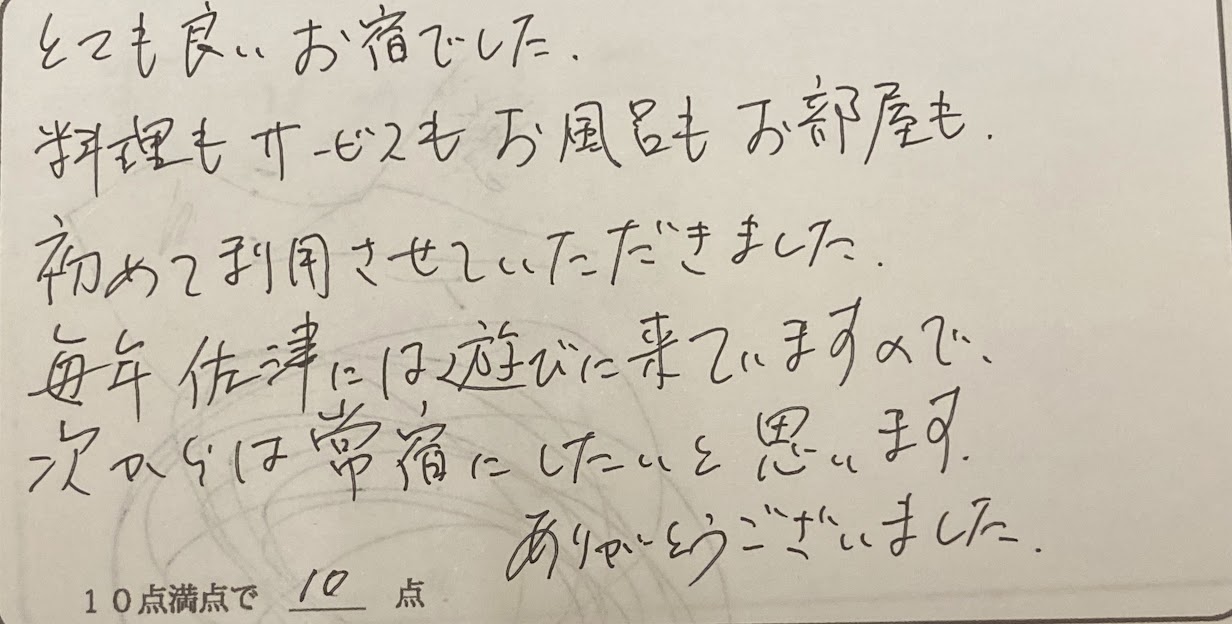 とても良いお宿でした.
料理もサービスもお風呂もお部屋も.
初めて利用させていただきました.
毎年佐津には遊びに来ていますので、
次からは常宿にしたいと思います.
ありがとうございました.
10点満点で 10 点